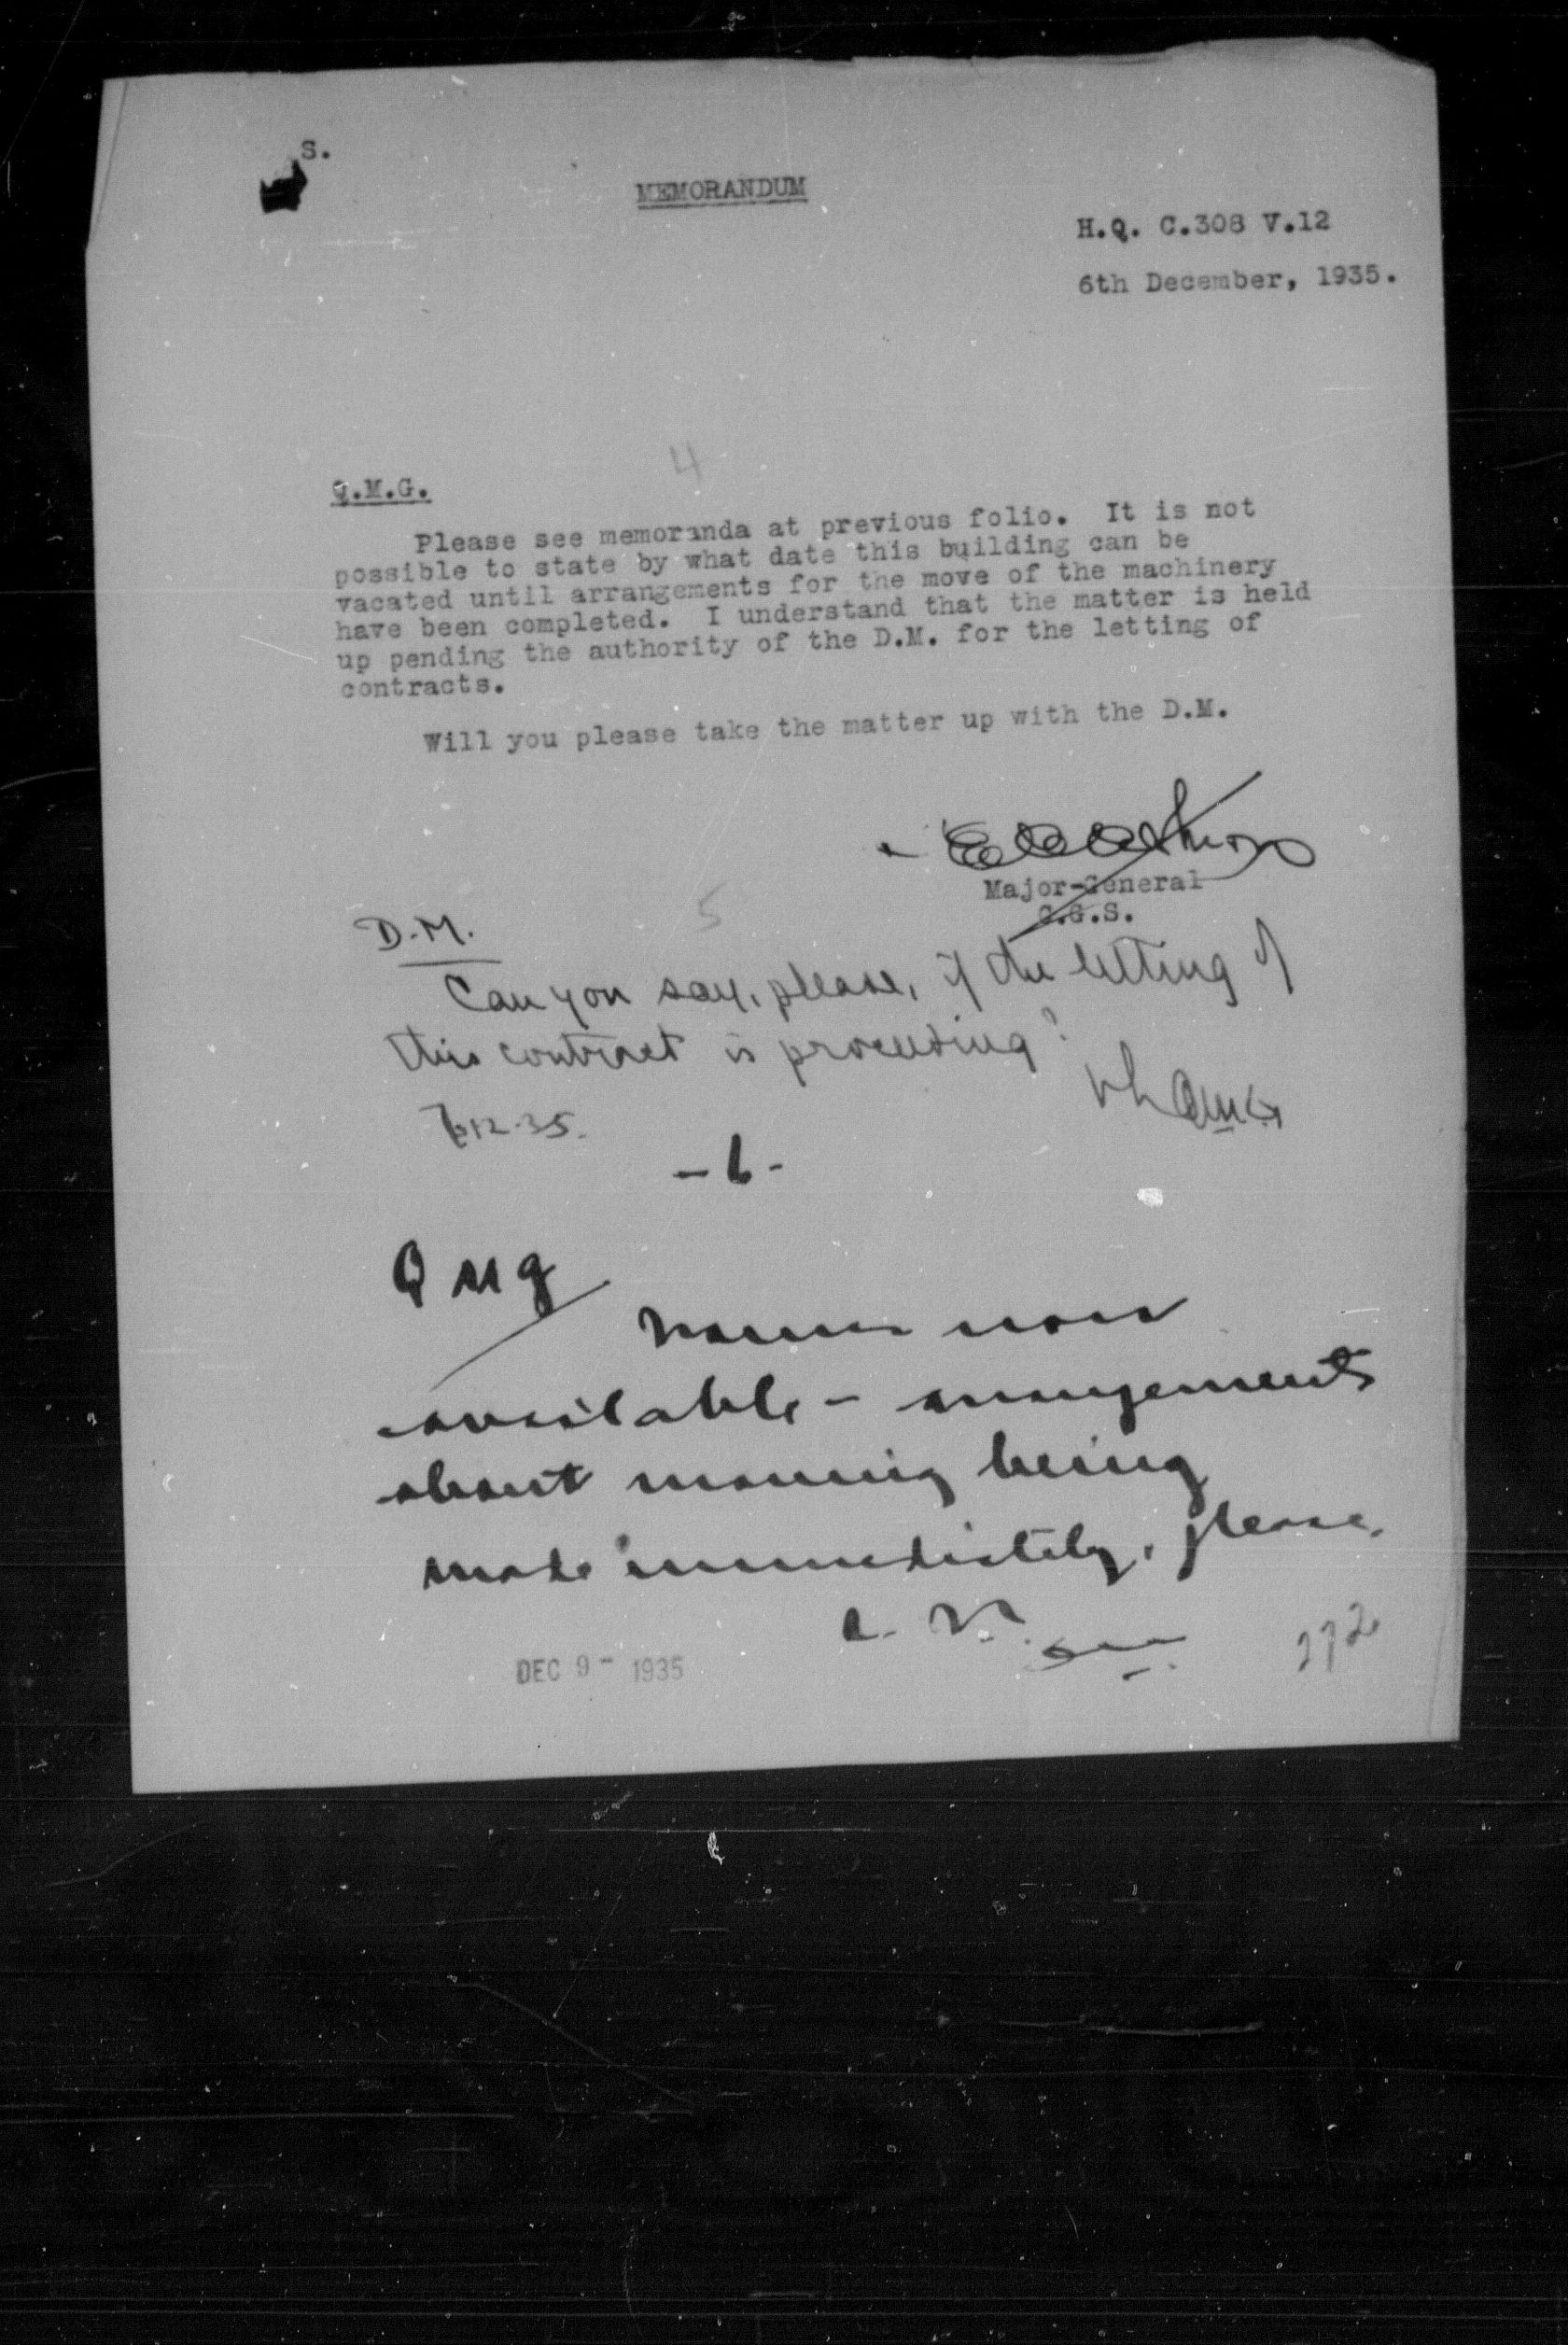 S.
MEMORANDUM
H.Q. C.308 V.12
6th December, 1935.
4
Q.M.G.
Please see memoranda at previous folio. It is not
possible to state by what date this building can be
vacated until arrangements for the move of the machinery
have been completed. I understand that the matter is held
up pending the authority of the D.M. for the letting of
contracts.
Will you please take the matter up with the D.M.
Major-General
C.G.S.
5
D.M.
Can you say, please, if the letting of
this contract is proceeding?
QMG
7-12-35.
- 6 -
QMG
now
available - arrangements
about moving being
made immediately, please.
DEC 9 - 1935
272